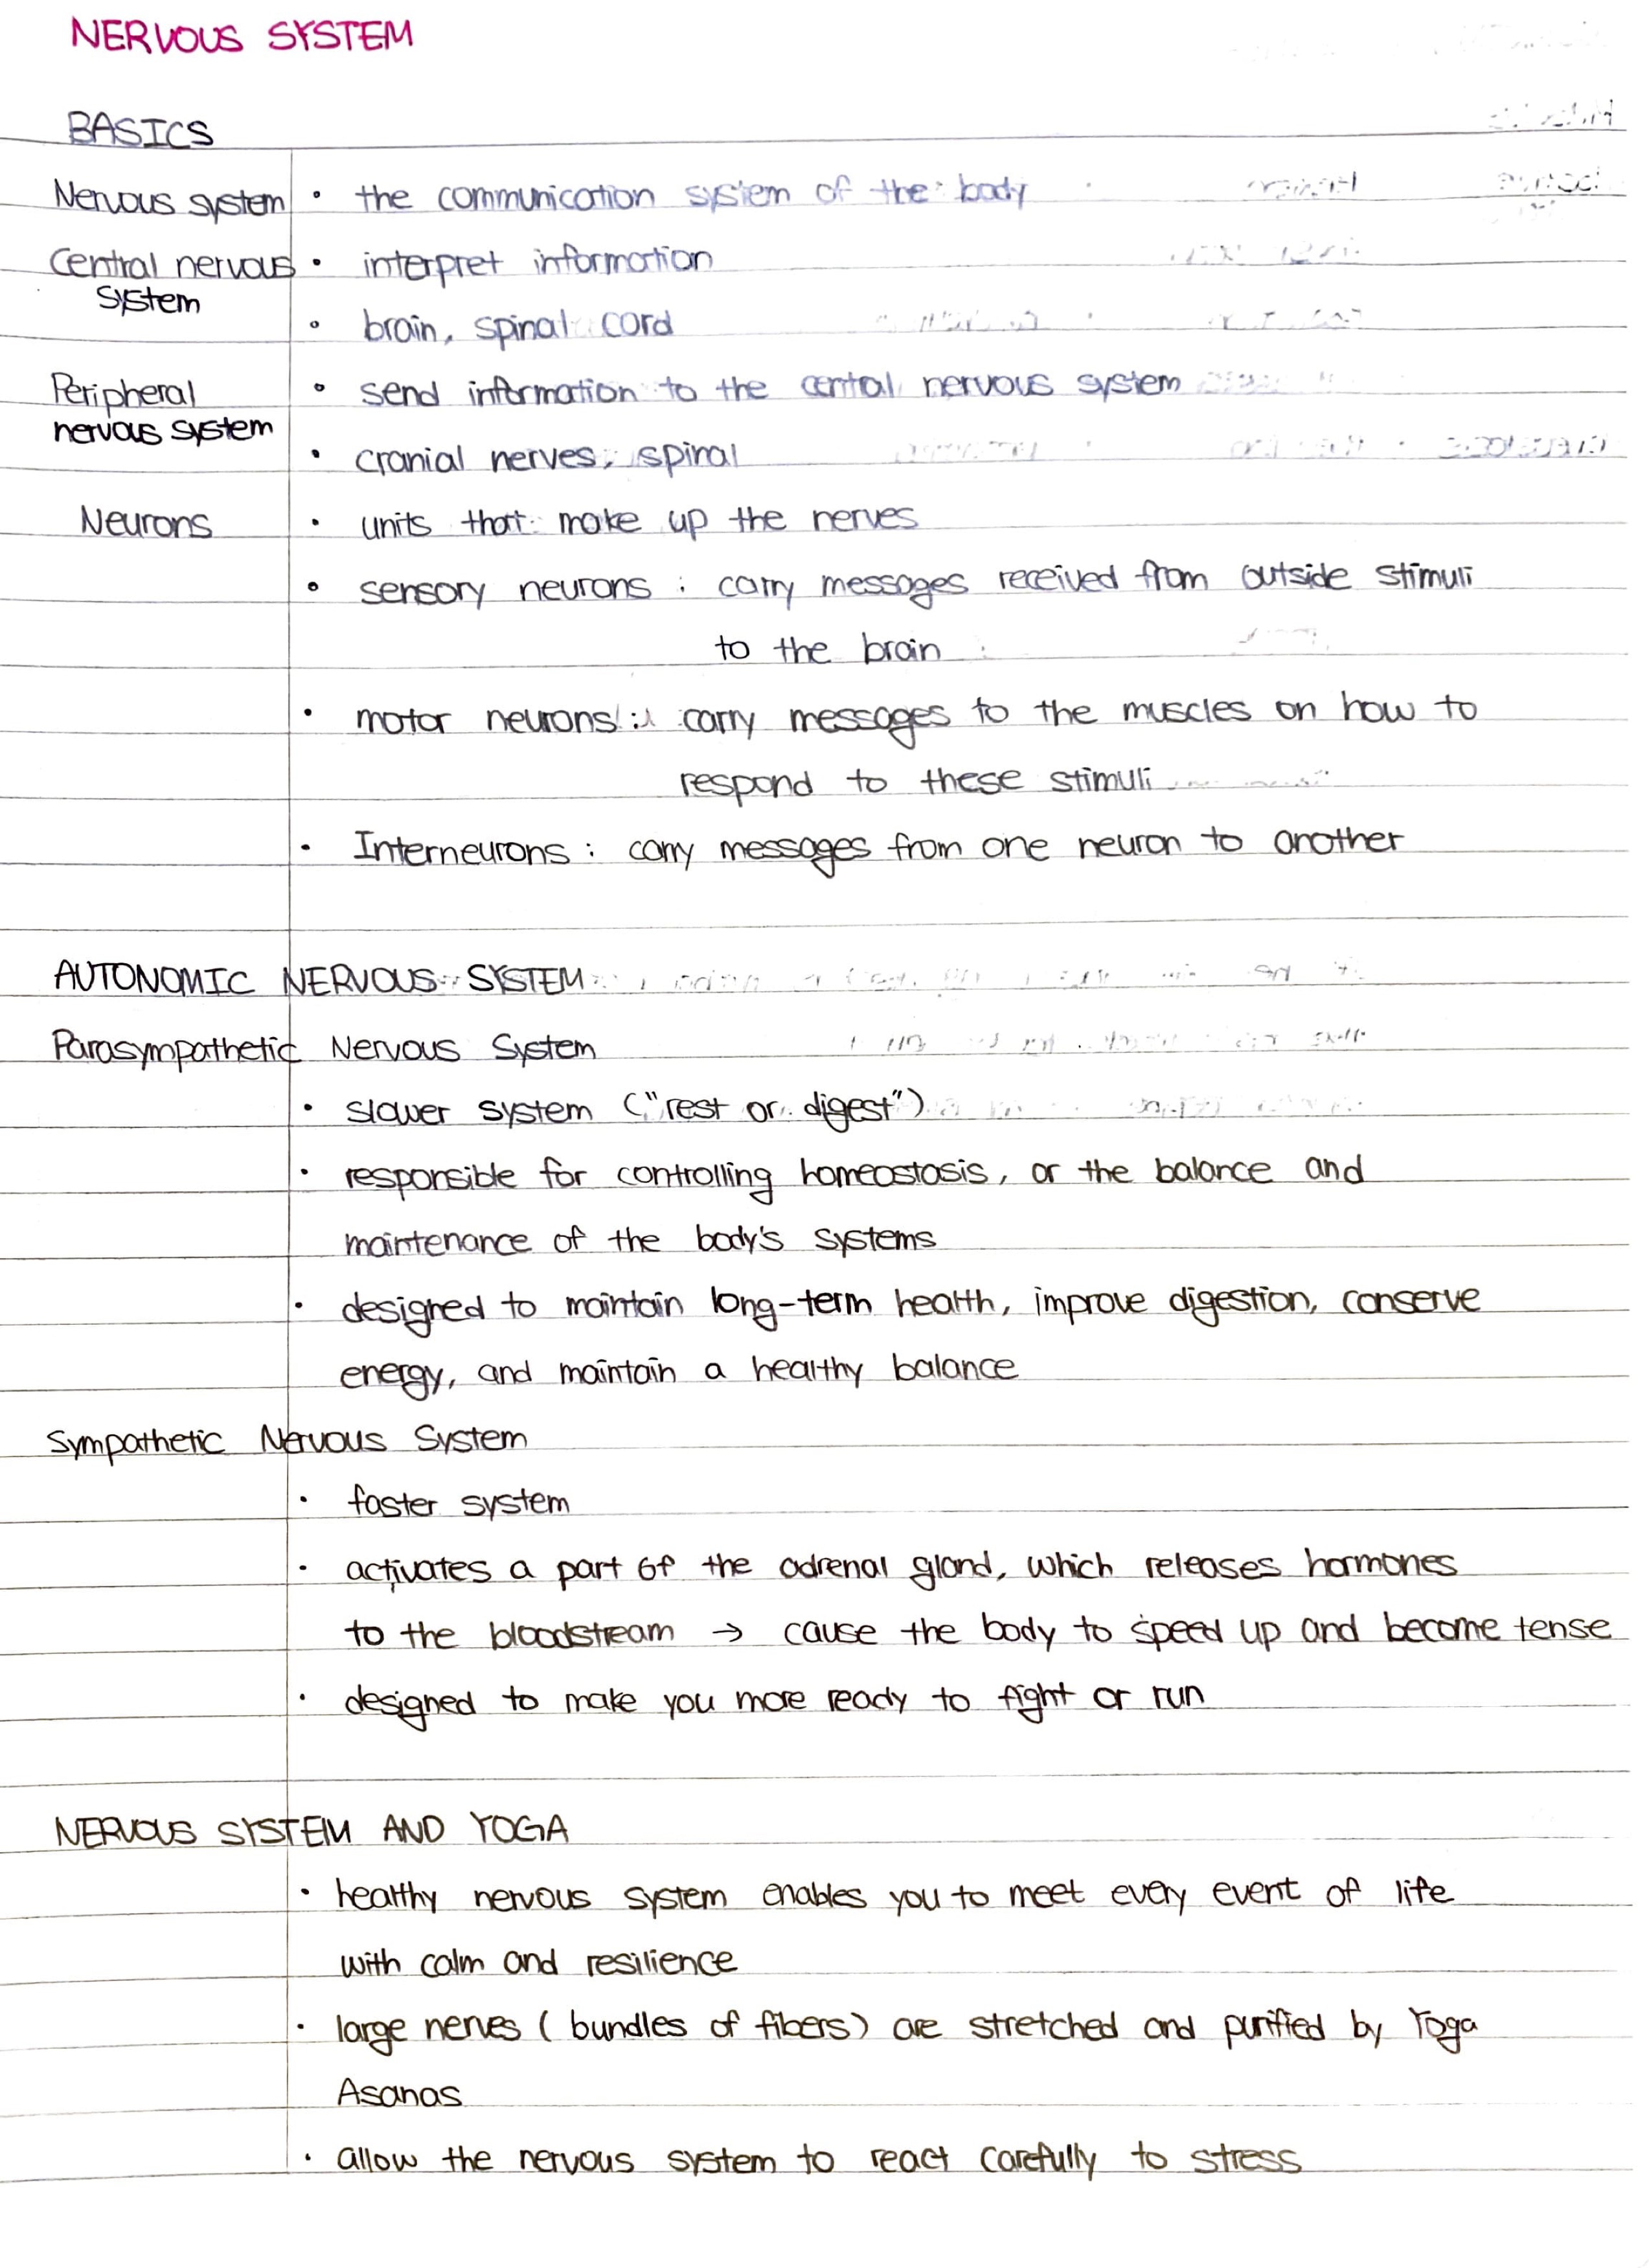 NERVOUS SYSTEM
BASICS
Nervous system • the communication system of the body
Central nervous • interpret information
system
• brain, spinal cord
Peripheral • send information to the cental nervous system
nervous system
• cranial nerves, spinal
Neurons • units that make up the nerves
• sensory neurons : carry messages received from outside stimuli
to the brain
• motor neurons : carry messages to the muscles on how to
respond to these stimuli
• Interneurons : carry messages from one neuron to another
AUTONOMIC NERVOUS SYSTEM
Parasympathetic Nervous System
• slower system ("rest or digest")
• responsible for controlling homeostasis, or the balance and
maintenance of the body's systems
• designed to maintain long-term health, improve digestion, conserve
energy, and maintain a healthy balance
Sympathetic Nervous System
• faster system
• activates a part of the adrenal gland, which releases hormones
to the bloodstream → cause the body to speed up and become tense
• designed to make you more ready to fight or run
NERVOUS SYSTEM AND YOGA
• healthy nervous system enables you to meet every event of life
with calm and resilience
• large nerves ( bundles of fibers) are stretched and purified by Yoga
Asanas
• allow the nervous system to react carefully to stress